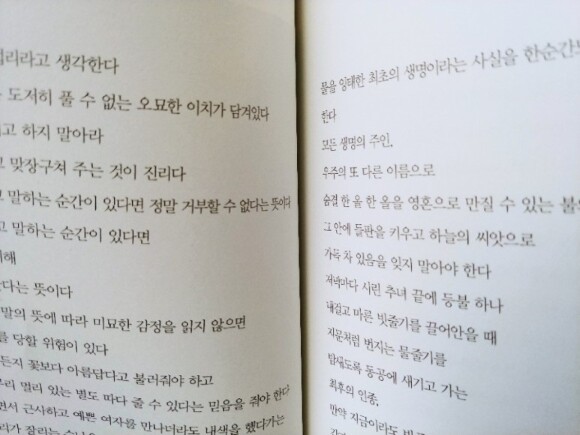 생각한다
도저히 풀 수 없는 오묘한 이치가 담겨있다
하지 말아라
맞장구쳐 주는 것이 진리다
말하는 순간이 있다면 정말 거부할 수 없다는 뜻이다
말하는 순간이 있다면
뜻이다
말의 뜻에 따라 미묘한 감정을 읽지 않으면
당할 위험이 있다
꽃보다 아름답다고 불러줘야 하고
멀리 있는 별도 따다 줄 수 있다는 믿음을 줘야 한다
근사하고 예쁜 여자를 만나더라도 내색을 했다가는
물을 잉태한 최초의 생명이라는 사실을 한순간
한다
모든 생명의 주인,
우주의 또 다른 이름으로
숨결 한 올 한 올을 영혼으로 만질 수 있는
그 안에 들판을 키우고 하늘의 씨앗으로
가득 차 있음을 잊지 말아야 한다
저녁마다 시린 추녀 끝에 등불 하나
내걸고 마른 빗줄기를 끌어안을 때
지문처럼 번지는 물줄기를
밤새도록 동공에 새기고 가는
최후의 인종,
만약 지금이라도